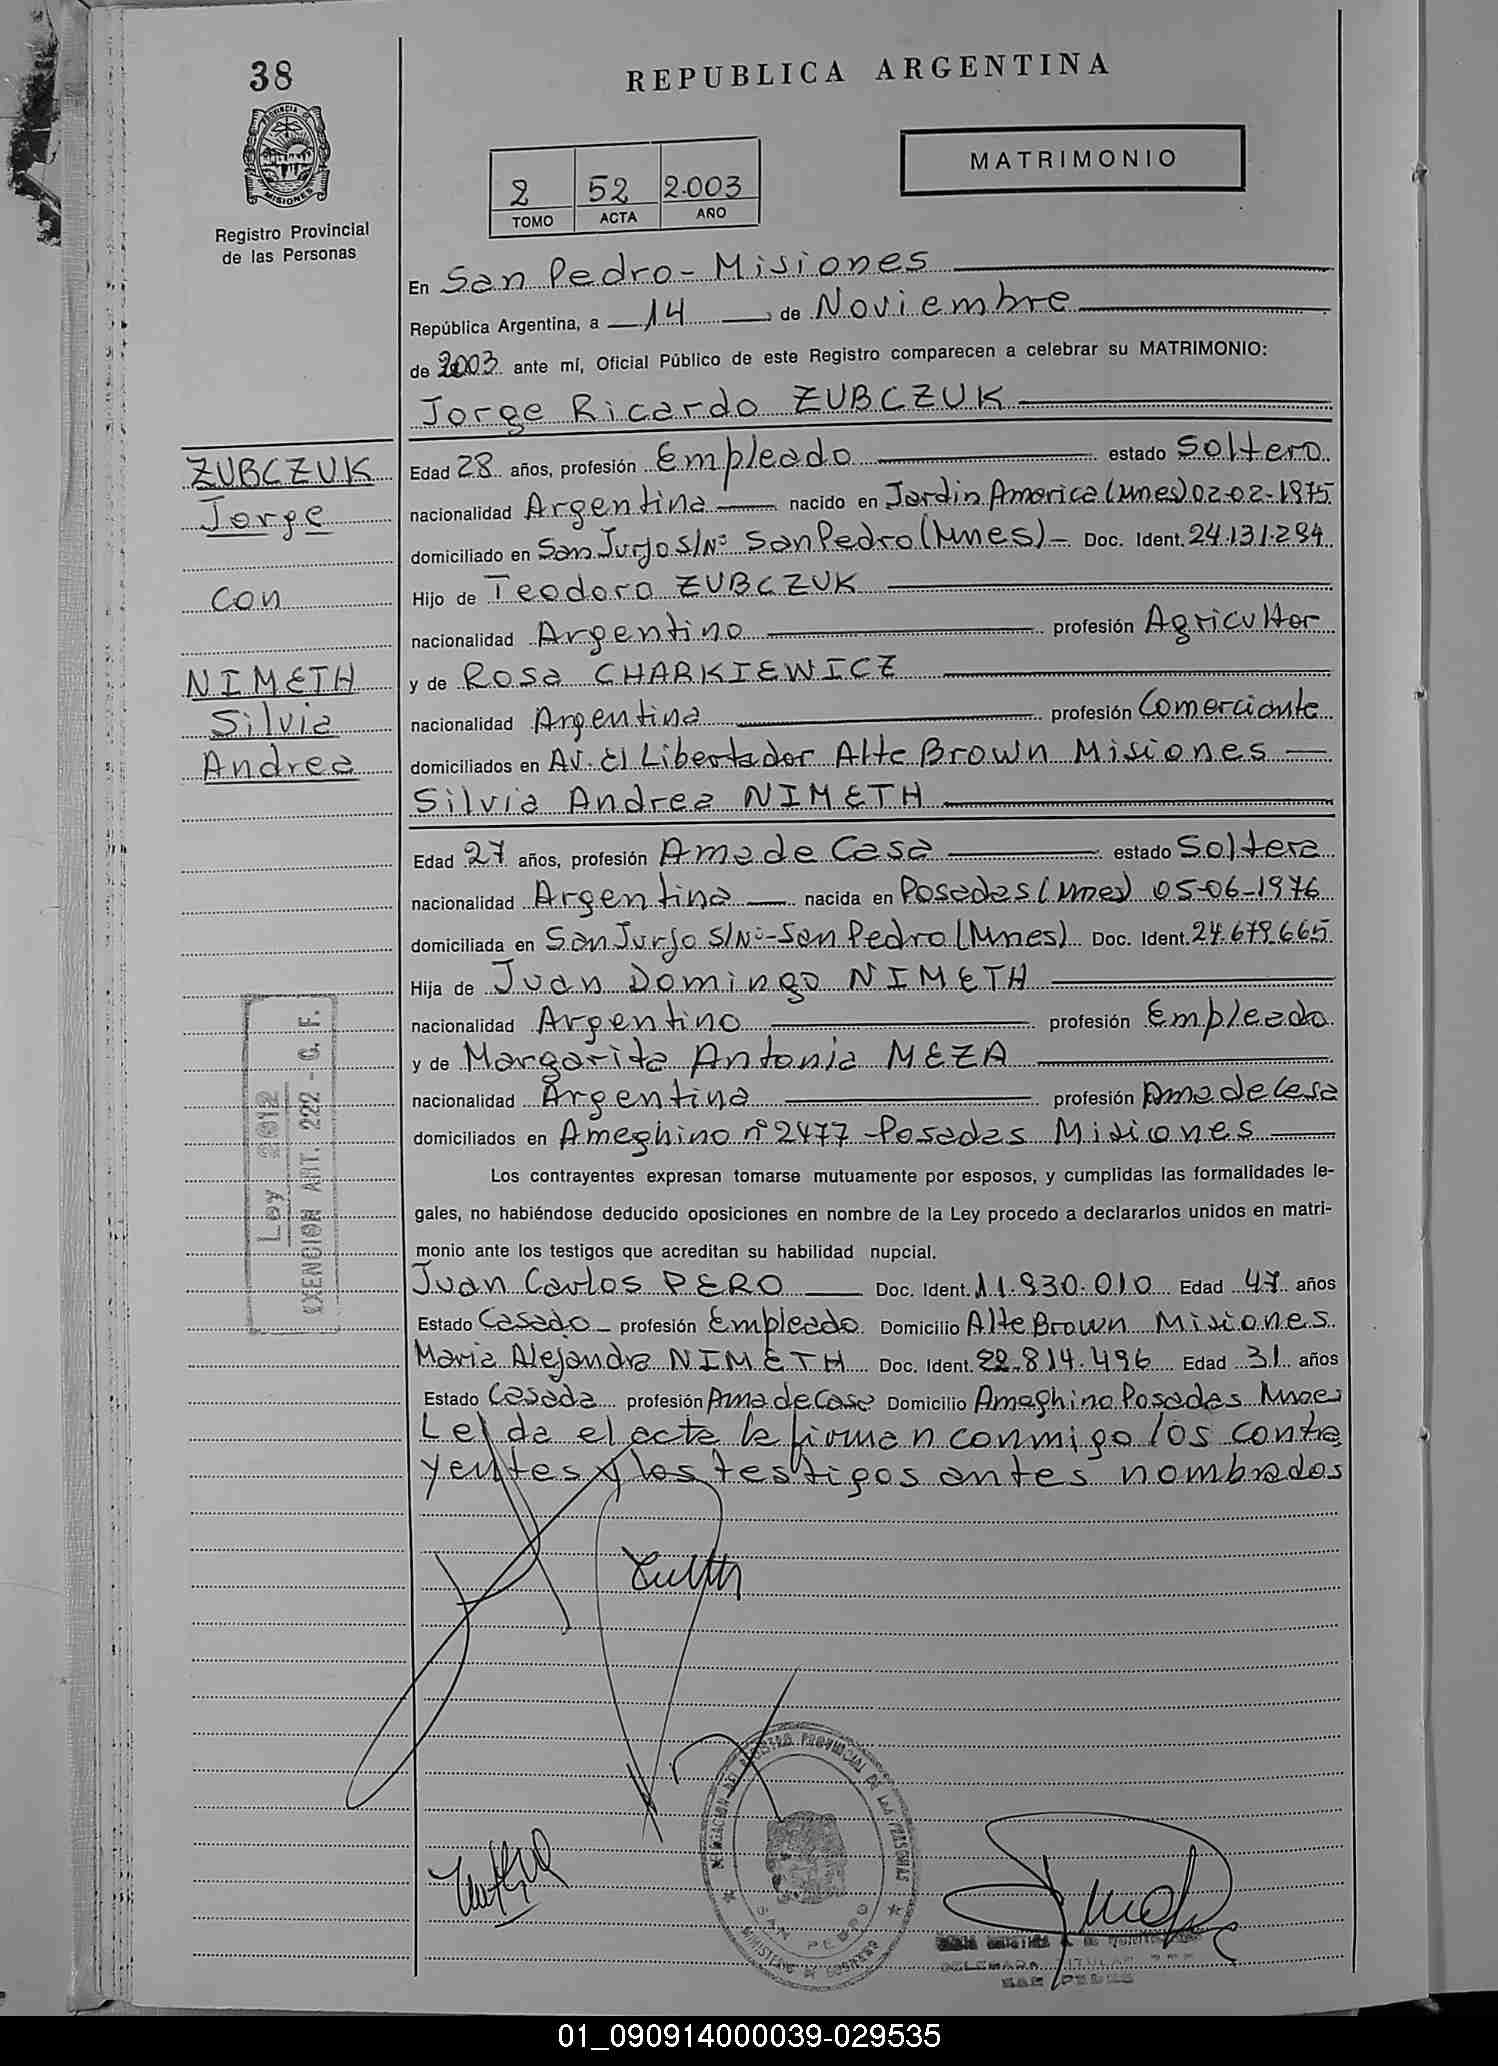 38
REPUBLICA ARGENTINA
PROVINCIA DE
MISIONES
Registro Provincial
de las Personas
MATRIMONIO
2 52 2.003
TOMO ACTA AÑO
En San Pedro - Misiones
República Argentina, a 14 de Noviembre
de 2003 ante mí, Oficial Público de este Registro comparecen a celebrar su MATRIMONIO:
Jorge Ricardo ZUBCZUK
ZUBCZUK
Jorge
con
NIMETH
Silvia
Andrea
Edad 28 años, profesión Empleado estado Soltero
nacionalidad Argentina nacido en Jardin America (Mnes) 02-02-1975
domiciliado en San Jurjo S/Nº San Pedro (Mnes) - Doc. Ident. 24.131.294
Hijo de Teodoro ZUBCZUK
nacionalidad Argentino profesión Agricultor
y de Rosa CHARKIEWICZ
nacionalidad Argentina profesión Comerciante
domiciliados en Av. El Libertador Alte Brown Misiones
Silvia Andrea NIMETH
Edad 27 años, profesión Ama de Casa estado Soltera
nacionalidad Argentina nacida en Posadas (Mnes) 05-06-1976
domiciliada en San Jurjo S/Nº - San Pedro (Mnes) Doc. Ident. 24.679.665
Hija de Juan Domingo NIMETH
nacionalidad Argentino profesión Empleado
y de Margarita Antonia MEZA
nacionalidad Argentina profesión Ama de Casa
domiciliados en Ameghino nº 2477 - Posadas Misiones
Ley 2012
EXENCION ART. 222 - C. F.
Los contrayentes expresan tomarse mutuamente por esposos, y cumplidas las formalidades le-
gales, no habiéndose deducido oposiciones en nombre de la Ley procedo a declararlos unidos en matri-
monio ante los testigos que acreditan su habilidad nupcial.
Juan Carlos PERO Doc. Ident. 11.930.010 Edad 47 años
Estado Casado - profesión Empleado Domicilio Alte Brown Misiones
Maria Alejandra NIMETH Doc. Ident. 22.814.496 Edad 31 años
Estado Casada profesión Ama de Casa Domicilio Ameghino Posadas Mnes
Leida el acta la firman conmigo los contra
yentes y los testigos antes nombrados
DELEGACION DEL REGISTRO PROVINCIAL DE LAS PERSONAS
SAN PEDRO
MINISTERIO DE GOBIERNO
DELEGADA TITULAR
SAN PEDRO
01_090914000039-029535